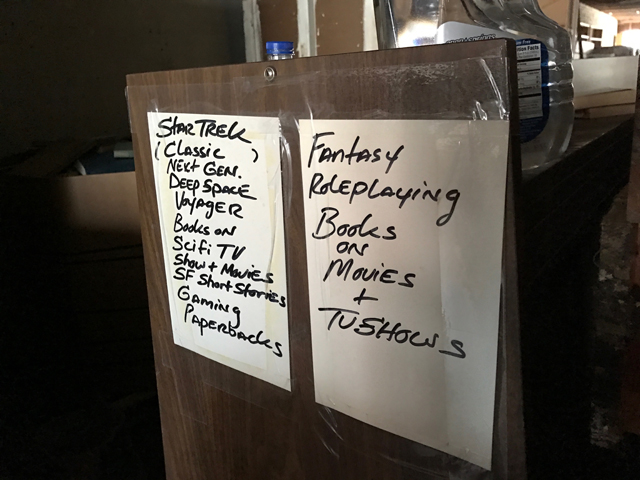 STAR TREK
(CLASSIC )
NEXT GEN.
DEEP SPACE
VOYAGER
BOOKS ON
SCIFI TV
SHOW + MOVIES
SF SHORT STORIES
GAMING
PAPERBACKS
FANTASY
ROLEPLAYING
BOOKS
ON
MOVIES
+
TV SHOWS